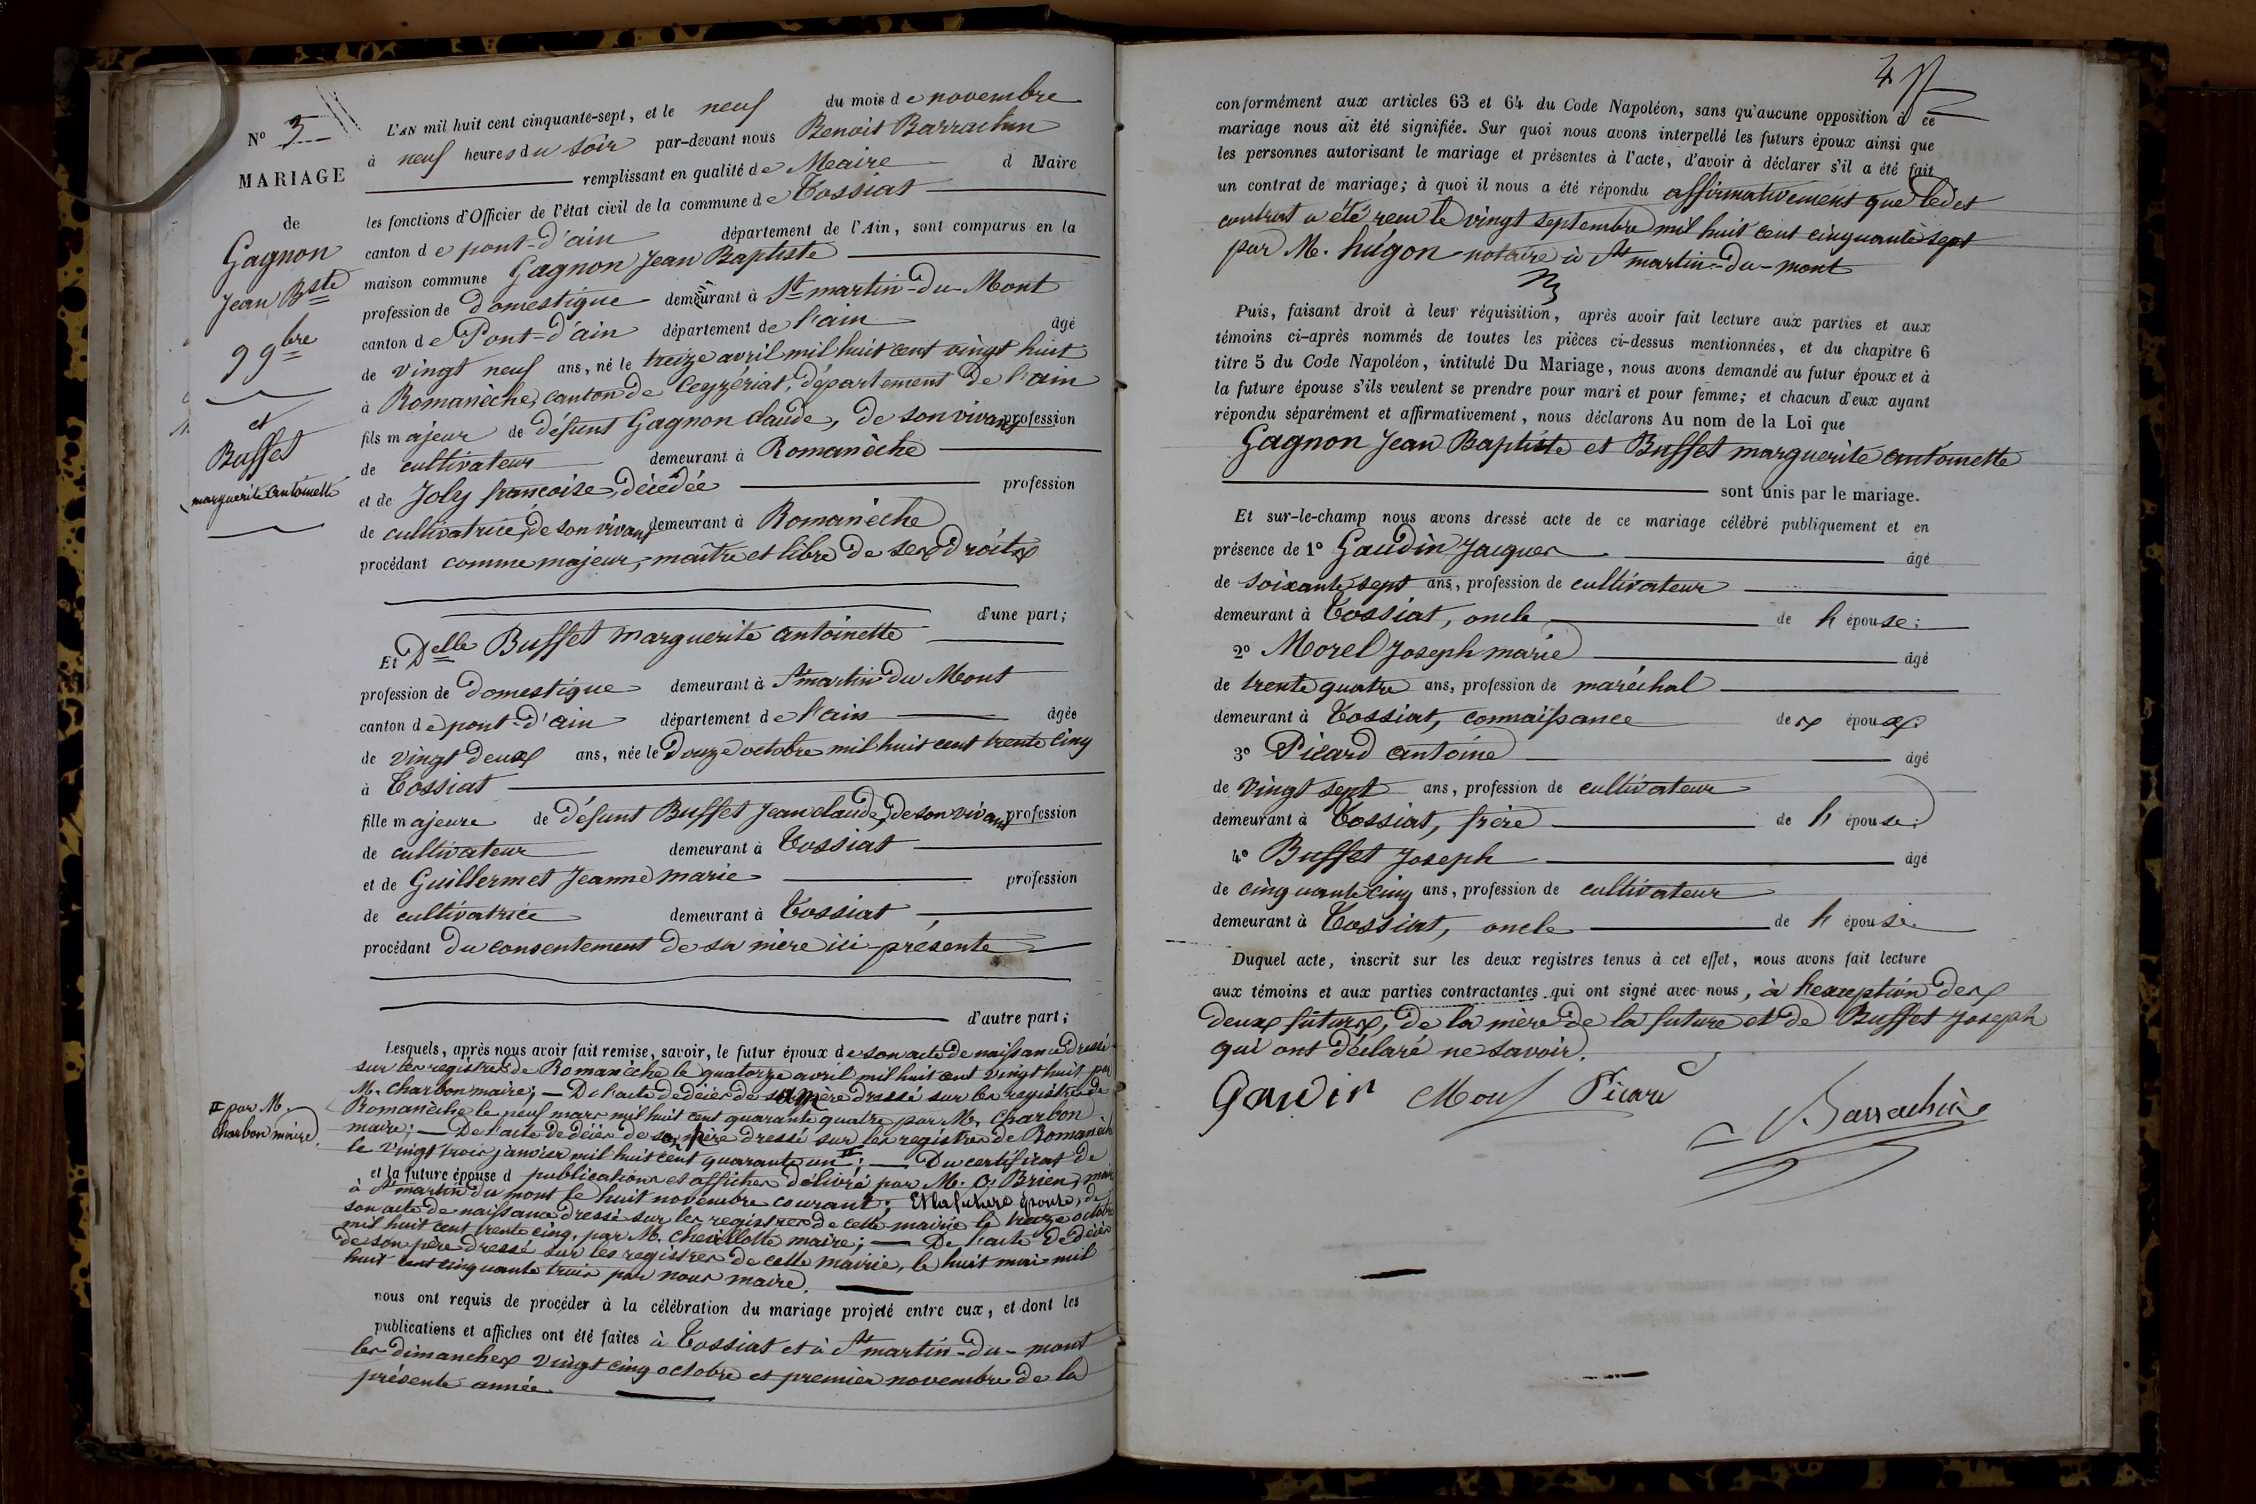 N° 3
MARIAGE
de
Gagnon
Jean Bste
9 9bre
et
Buffet
marguerite antoinette
L'AN mil huit cent cinquante-sept, et le neuf du mois de novembre
à neuf heures du soir par-devant nous Benoit Barrachin
remplissant en qualité de Maire d Maire
les fonctions d'Officier de l'état civil de la commune de Tossiat
canton de pont-d'ain département de l'Ain, sont comparus en la
maison commune Gagnon Jean Baptiste
profession de domestique demeurant à St martin-du-Mont
canton de Pont-d'ain département de l'ain âgé
de vingt neuf ans, né le treize avril mil huit cent vingt huit
à Romanèche, canton de Ceyzériat, département de l'ain
fils majeur de défunt Gagnon claude, de son vivant profession
de cultivateur demeurant à Romanèche
et de Joly francoise, décédée profession
de cultivatrice, de son vivant demeurant à Romanèche
procédant comme majeur, maître et libre de ses droits
d'une part;
Et Delle Buffet marguerite antoinette
profession de domestique demeurant à St martin du Mont
canton de pont-d'ain département de l'ain âgée
de vingt deux ans, née le Douze octobre mil huit cent trente cinq
à Tossiat
fille majeure de défunt Buffet Jean claude, de son vivant profession
de cultivateur demeurant à Tossiat
et de Guillermet Jeanne marie profession
de cultivatrice demeurant à Tossiat
procédant du consentement de sa mère ici présente
d'autre part;
Lesquels, après nous avoir fait remise, savoir, le futur époux de son acte de naissance dressé
sur les registres de Romanèche le quatorze avril mil huit cent vingt huit par
M. charbon maire; — De l'acte de décès de sa mère dressé sur les registres de
Romanèche le neuf mars mil huit cent quarante quatre par M. charbon
maire; — De l'acte de décès de son père dressé sur les registres de Romanèche
le vingt trois janvier mil huit cent quarante un; — Du certificat de
par M.
charbon maire.
et la future épouse d publications et affiches délivré par M. O. Brien, maire
à St martin du mont le huit novembre courant; Et la future épouse, de
son acte de naissance dressé sur les registres de cette mairie le treize octobre
mil huit cent trente cinq, par M. chevillotte maire; — De l'acte de décès
de son père dressé sur les registres de cette mairie, le huit mai mil
huit cent cinquante trois par nous maire.
nous ont requis de procéder à la célébration du mariage projeté entre eux, et dont les
publications et affiches ont été faites à Tossiat et à St martin-du-mont
les dimanches vingt cinq octobre et premier novembre de la
présente année
4
conformément aux articles 63 et 64 du Code Napoléon, sans qu'aucune opposition à ce
mariage nous ait été signifiée. Sur quoi nous avons interpellé les futurs époux ainsi que
les personnes autorisant le mariage et présentes à l'acte, d'avoir à déclarer s'il a été fait
un contrat de mariage; à quoi il nous a été répondu affirmativement que ledit
contrat a été reçu le vingt septembre mil huit cent cinquante sept
par M. hugon notaire à St martin-du-mont
Puis, faisant droit à leur réquisition, après avoir fait lecture aux parties et aux
témoins ci-après nommés de toutes les pièces ci-dessus mentionnées, et du chapitre 6
titre 5 du Code Napoléon, intitulé Du Mariage, nous avons demandé au futur époux et à
la future épouse s'ils veulent se prendre pour mari et pour femme; et chacun d'eux ayant
répondu séparément et affirmativement, nous déclarons Au nom de la Loi que
Gagnon Jean Baptiste et Buffet marguerite antoinette
sont unis par le mariage.
Et sur-le-champ nous avons dressé acte de ce mariage célébré publiquement et en
présence de 1° Gaudin Jacques âgé
de soixante sept ans, profession de cultivateur
demeurant à Tossiat, oncle de l'épouse;
2° Morel Joseph marie âgé
de trente quatre ans, profession de maréchal
demeurant à Tossiat, connaissance des époux
3° Picard antoine âgé
de vingt sept ans, profession de cultivateur
demeurant à Tossiat, frère de l'épouse;
4° Buffet Joseph âgé
de cinquante cinq ans, profession de cultivateur
demeurant à Tossiat, oncle de l'épouse.
Duquel acte, inscrit sur les deux registres tenus à cet effet, nous avons fait lecture
aux témoins et aux parties contractantes qui ont signé avec nous, à l'exception des
deux futurs, de la mère de la future et de Buffet Joseph
qui ont déclaré ne savoir.
Gaudin Morel Picard
Barrachin